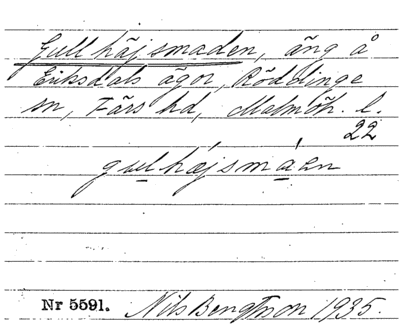 Gullhäjsmaden, äng å
Eriksdals ägor, Röddinge
sn, Färs hd, Malmöh. l.
22
gulhájsmáen
Nr 5591. Nils Bengtsson 1935.